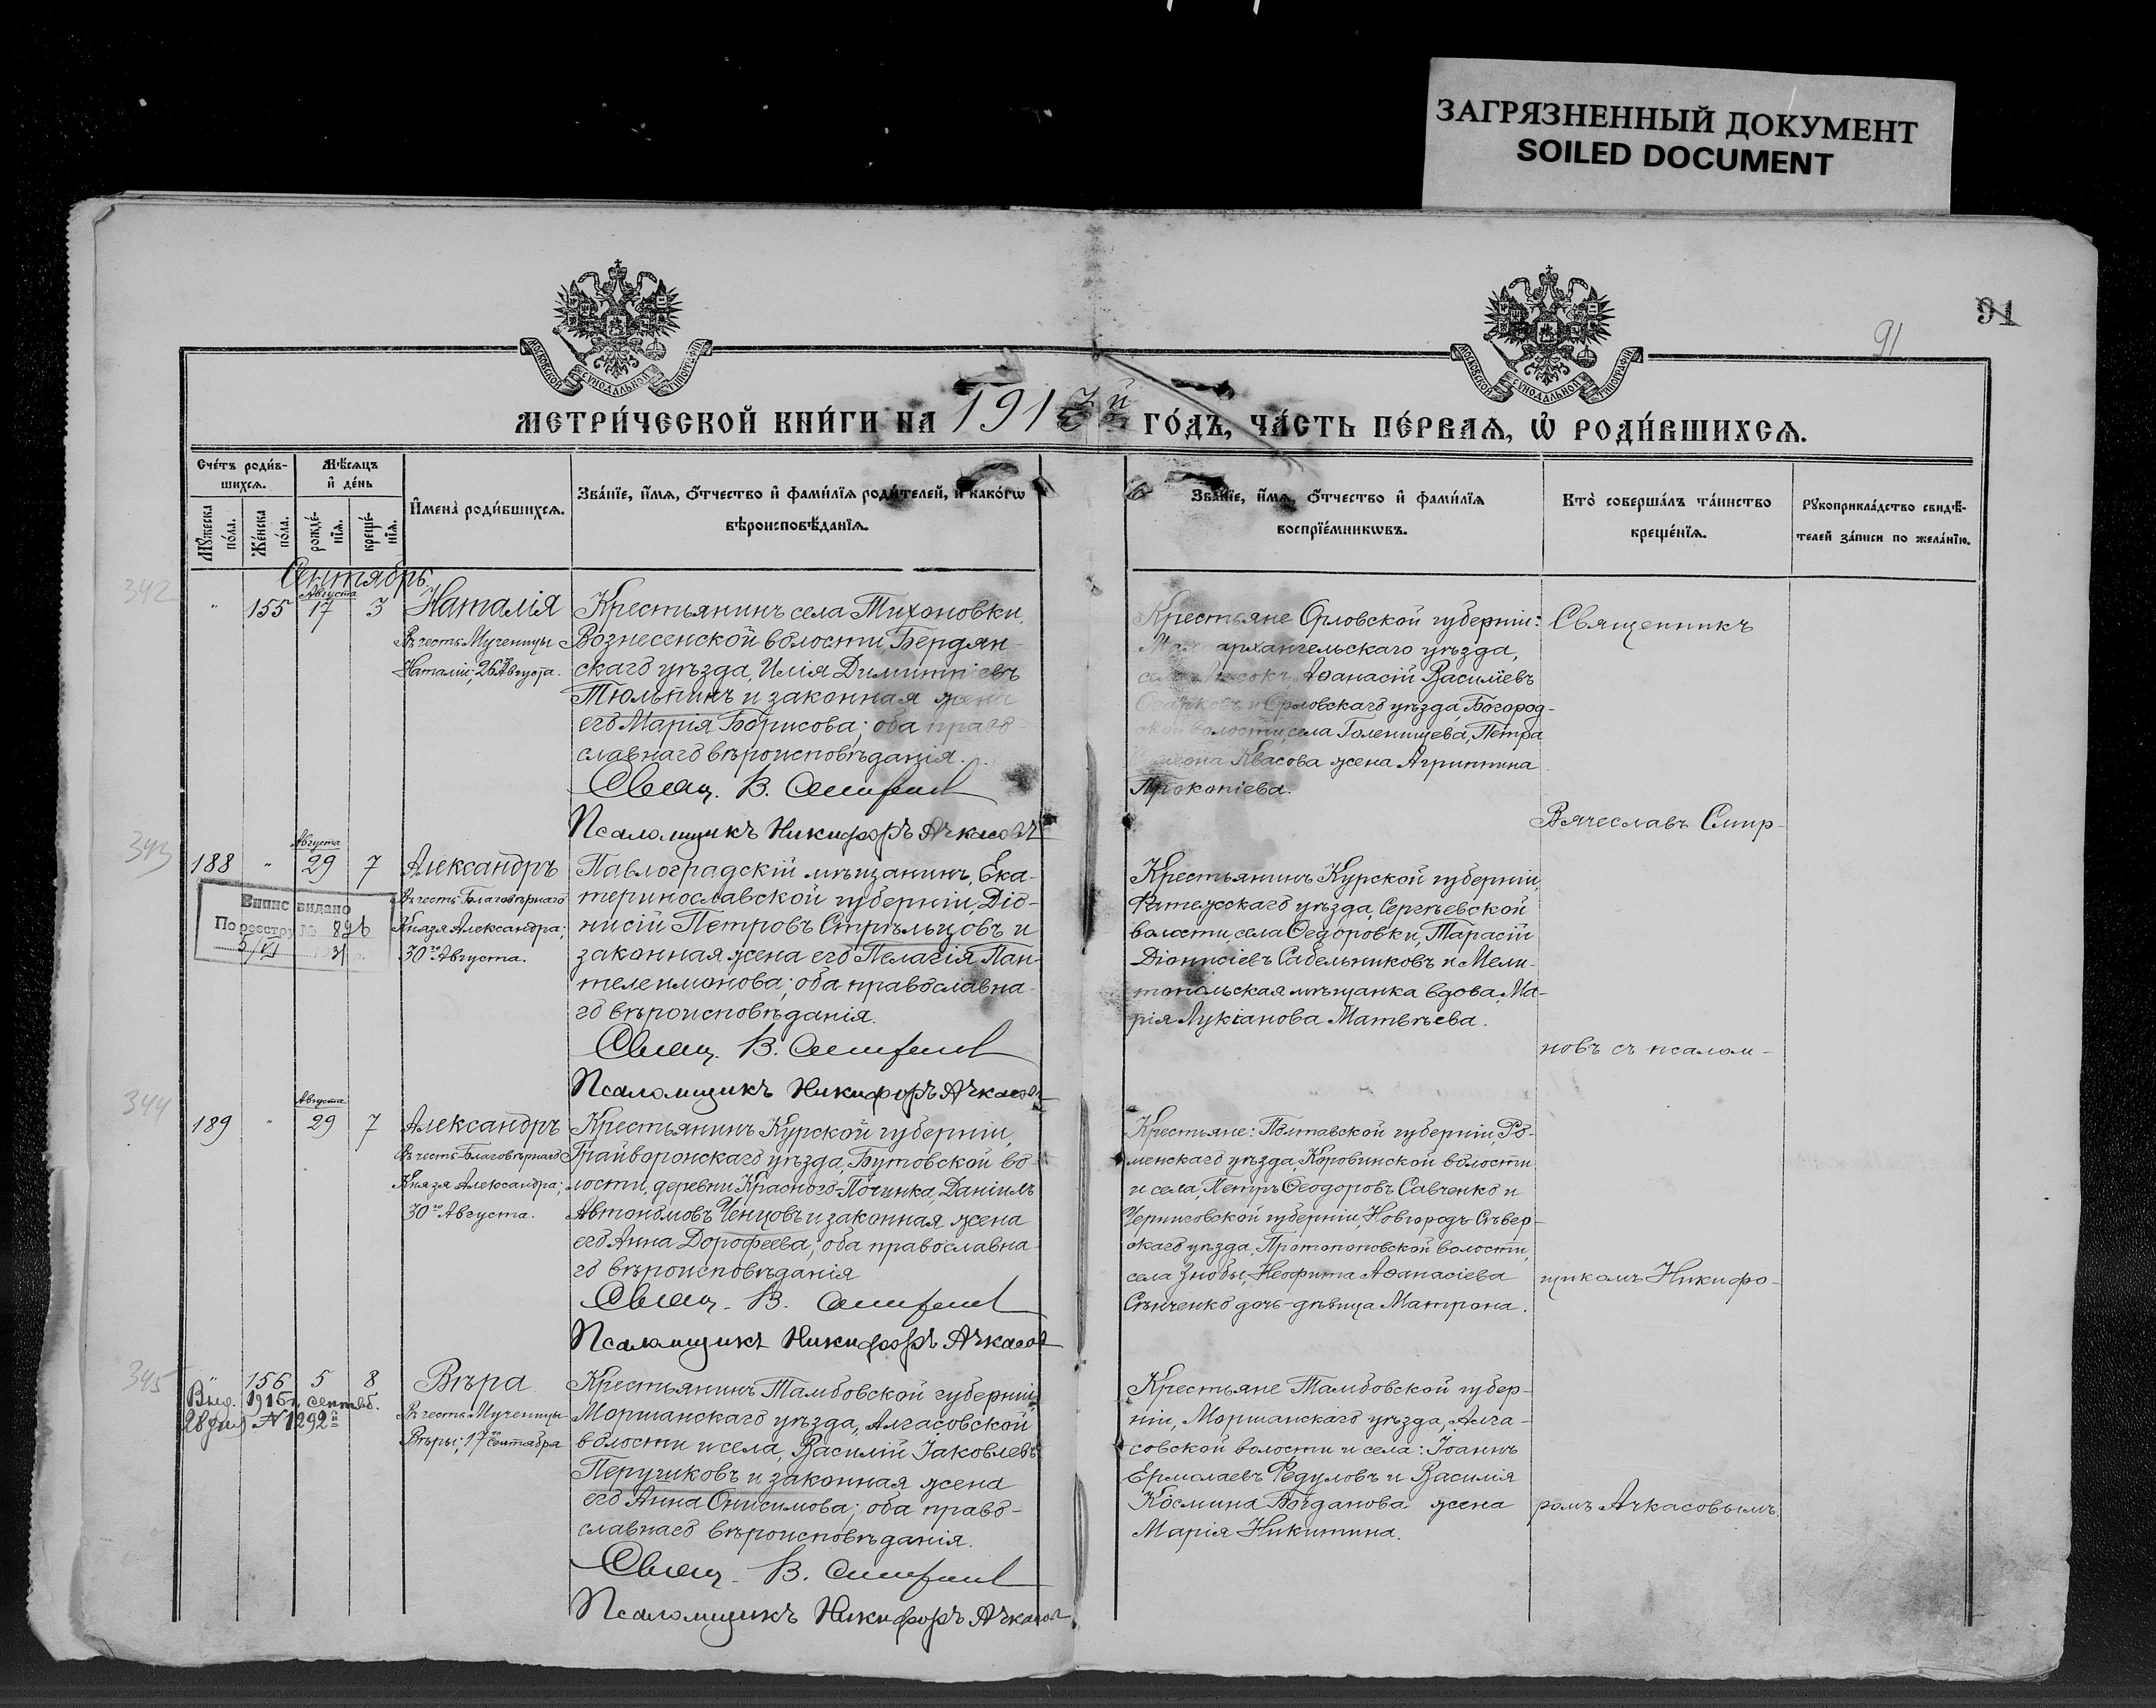 ЗАГРЯЗНЕННЫЙ ДОКУМЕНТ
SOILED DOCUMENT
91
91
МОСКОВСКОЙ СѴНОДАЛЬНОЙ ТИПОГРАФІИ
МОСКОВСКОЙ СѴНОДАЛЬНОЙ ТИПОГРАФІИ
МЕТРИ́ЧЕСКОЙ КНИ́ГИ НА 191 й ГО́ДЪ, ЧА́СТЬ ПЕ́РВАѦ, Ѽ РОДИ́ВШИХСѦ.
Сче́тъ роди́в-
шихсѧ.
Мꙋжеска по́ла.
Же́нска по́ла.
Мѣ́сѧцъ
и҆ де́нь
рожде́-
нїѧ.
креще́-
нїѧ.
И҆мена̀ роди́вшихсѧ.
Зва́нїе, и҆́мѧ, ѻ҆́тчество и҆ фами́лїѧ роди́телей, и҆ како́гѡ
вѣроисповѣ́данїѧ.
Зва́нїе, и҆́мѧ, ѻ҆́тчество и҆ фами́лїѧ
воспрїе́мникѡвъ.
Кто̀ соверша́лъ та́инство
креще́нїѧ.
Рꙋкоприкла́дство свидѣ́-
телей за́писи по жела́нїю.
Сентябрь.
342
" 155 Августа 17 3
Наталія
Въ честь Мученицы
Наталіи; 26го Августа.
Крестьянинъ села Тихоновки,
Вознесенской волости, Бердян-
скаго уѣзда, Илія Димитріевъ
Тюльпинъ и законная жена
его Марія Борисова; оба право-
славнаго вѣроисповѣданія.
Свящ. В. Смирнов
Псаломщикъ Никифоръ Ачкасовъ
Крестьяне Орловской губерніи:
архангельскаго уѣзда,
Аѳанасій Василіевъ
и Орловскаго уѣзда, Богород-
волости, села Голенищева, Петра
Квасова жена Агриппина
Прокопіева.
Священникъ
Вячеславъ Смир-
343
188 " Августа 29 7
Александръ
Въ честь Благовѣрнаго
Князя Александра;
30го Августа.
Випис видано
По реестру № 896
5/VI 31
Павлоградскій мѣщанинъ, Ека-
теринославской губерніи, Діо-
нисій Петровъ Стрѣльцовъ и
законная жена его Пелагія Пан-
телеимонова; оба православна-
го вѣроисповѣданія.
Свящ. В. Смирнов
Псаломщикъ Никифоръ Ачкасовъ
Крестьянинъ Курской губерніи,
Фатежскаго уѣзда, Сергѣевской
волости, села Ѳедоровки, Тарасій
Діонисіевъ Сабельниковъ и Мели-
топольская мѣщанка вдова, Ма-
рія Лукіанова Матвѣева.
новъ съ псалом-
344
189 " Августа 29 7
Александръ
Въ честь Благовѣрнаго
Князя Александра;
30го Августа.
Крестьянинъ Курской губерніи,
Грайворонскаго уѣзда, Бутовской во-
лости, деревни Краснаго-Починка, Даніилъ
Автономовъ Ченцовъ и законная жена
его Анна Дорофеева; оба православна-
го вѣроисповѣданія
Свящ. В. Смирнов
Псаломщикъ Никифоръ Ачкасов
Крестьяне: Полтавской губерніи, Ро-
менскаго уѣзда, Коровинской волости
и села, Петръ Ѳеодоровъ Савченко и
Черниговской губерніи, Новгородъ-Сѣвер-
скаго уѣзда, Протопоповской волости,
села Зноби, Неофита Аѳанасіева
дочь-дѣвица Матрона.
щикомъ Никифо-
345
" 156 5 8
Вѣра
Въ честь Мученицы
Вѣры; 17го Сентября
Выд. 1915 г. сентяб.
28 дня № 1292й
Крестьянинъ Тамбовской губерніи,
Моршанскаго уѣзда, Алгасовской
волости и села, Василій Іаковлевъ
Перушковъ и законная жена
его Анна Онисимова; оба право-
славнаго вѣроисповѣданія.
Свящ. В. Смирнов
Псаломщикъ Никифоръ Ачкасов
Крестьяне Тамбовской губер-
ніи, Моршанскаго уѣзда, Алга-
совской волости и села: Іоаннъ
Ермолаевъ Федуловъ и Василія
Космина Богданова жена
Марія Никитина.
ромъ Ачкасовымъ.